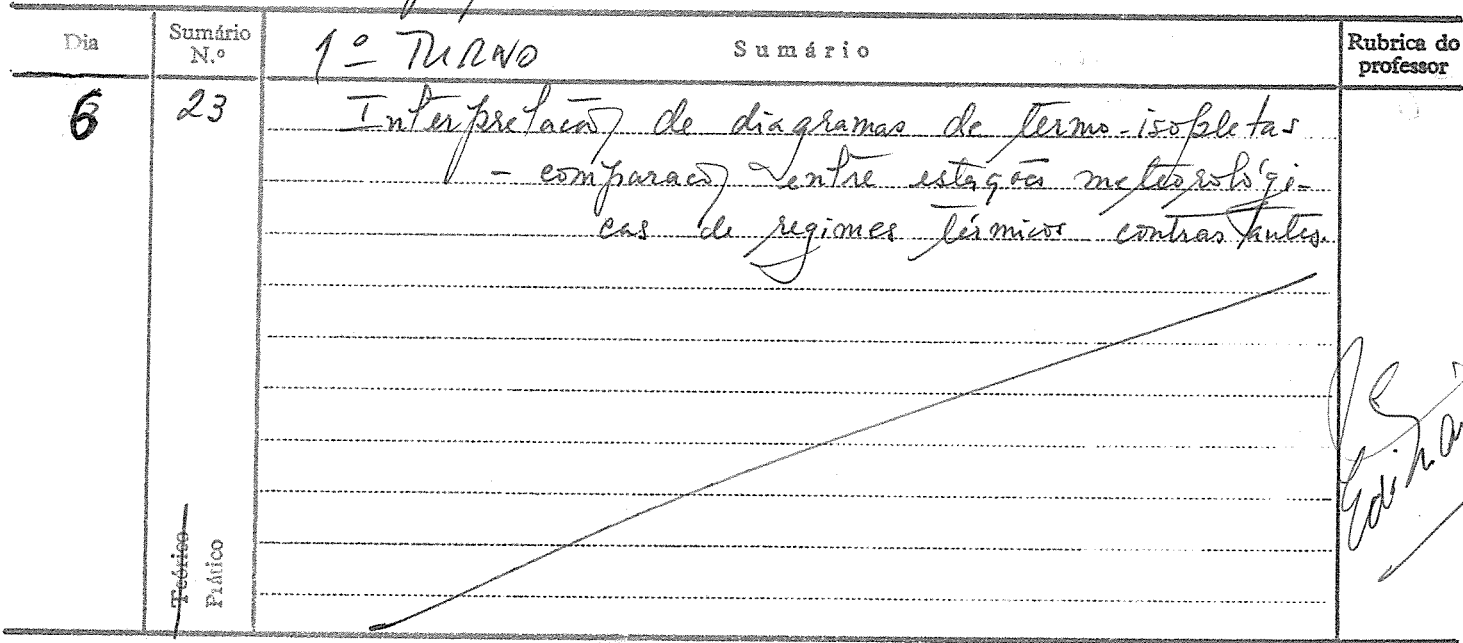 Dia
Sumário N.º
1º TURNO
Sumário
Rubrica do professor
6
23
Interpretação de diagramas de termo-isopletas
- comparação entre estações meteorológi-
cas de regimes térmicos contrastantes.
Teórico
Prático